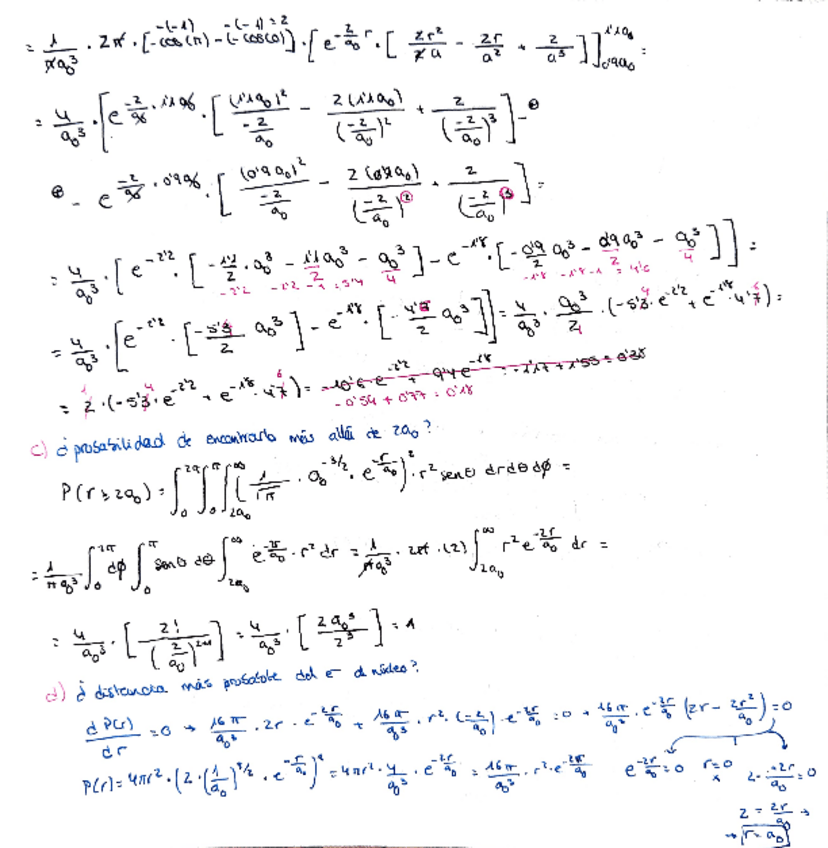 = 1/(πa₀³) · 2π · [-cos(π) - (-cos(0))] · [e^(-2/a₀ r) · [2r²/2a - 2r/a² + 2/a³]]_{0'9a₀}^{1'1a₀} =
-(-1) -(-1) = 2
= 4/a₀³ · [e^(-2/a₀ · 1'1a₀) · [(1'1a₀)²/(-2/a₀) - 2(1'1a₀)/(-2/a₀)² + 2/(-2/a₀)³] -
- e^(-2/a₀ · 0'9a₀) · [(0'9a₀)²/(-2/a₀) - 2(0'9a₀)/(-2/a₀)² + 2/(-2/a₀)³] =
= 4/a₀³ · [e^(-2'2) · [-1'1/2 · a₀³ - 1'1a₀³/2 - a₀³/4] - e^(-1'8) · [-0'9/2 a₀³ - 0'9a₀³/2 - a₀³/4]] =
-2'2 -2'2 -1 = 5'4 -1'8 -1'8 -1 = 4'6
= 4/a₀³ · [e^(-2'2) · [-5'3/2 a₀³] - e^(-1'8) · [-4'6/2 a₀³]] = 4/a₀³ · a₀³/2 · (-5'3 · e^(-2'2) + e^(-1'8) · 4'7) =
= 2 · (-5'3 · e^(-2'2) + e^(-1'8) · 4'7) = -10'6 e^(-2'2) + 9'4 e^(-1'8) = -1'17 + 1'55 = 0'38
-0'54 + 0'77 = 0'18
c) ¿probabilidad de encontrarlo más allá de 2a₀?
P(r ≥ 2a₀) = ∫₀^{2π} ∫₀^π ∫_{2a₀}^∞ (1/√π · a₀^(-3/2) · e^(-r/a₀))² · r² senθ dr dθ dϕ =
= 1/(πa₀³) ∫₀^{2π} dϕ ∫₀^π senθ dθ ∫_{2a₀}^∞ e^(-2r/a₀) · r² dr = 1/(πa₀³) · 2π · (2) ∫_{2a₀}^∞ r² e^(-2r/a₀) dr =
= 4/a₀³ · [2!/(2/a₀)^(2+1)] = 4/a₀³ · [2a₀³/2³] = 1
d) ¿distancia más probable del e⁻ al núcleo?
dP(r)/dr = 0 → 16π/a₀³ · 2r · e^(-2r/a₀) + 16π/a₀³ · r² · (-2/a₀) · e^(-2r/a₀) = 0 → 16π/a₀³ · e^(-2r/a₀) (2r - 2r²/a₀) = 0
P(r) = 4πr² · (2 · (1/a₀)^(3/2) · e^(-r/a₀))² = 4πr² · 4/a₀³ · e^(-2r/a₀) = 16π/a₀³ · r² · e^(-2r/a₀) e^(-2r/a₀) = 0 r = 0 2 · -2r/a₀ = 0
2 = 2r/a₀ →
→ r = a₀